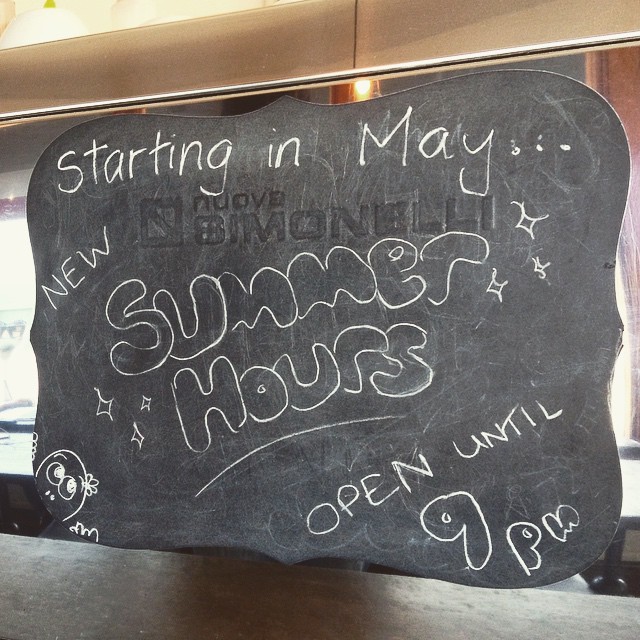 Starting in May...
nuova
SIMONELLI
NEW
SUMMER
HOURS
OPEN UNTIL
9 pm